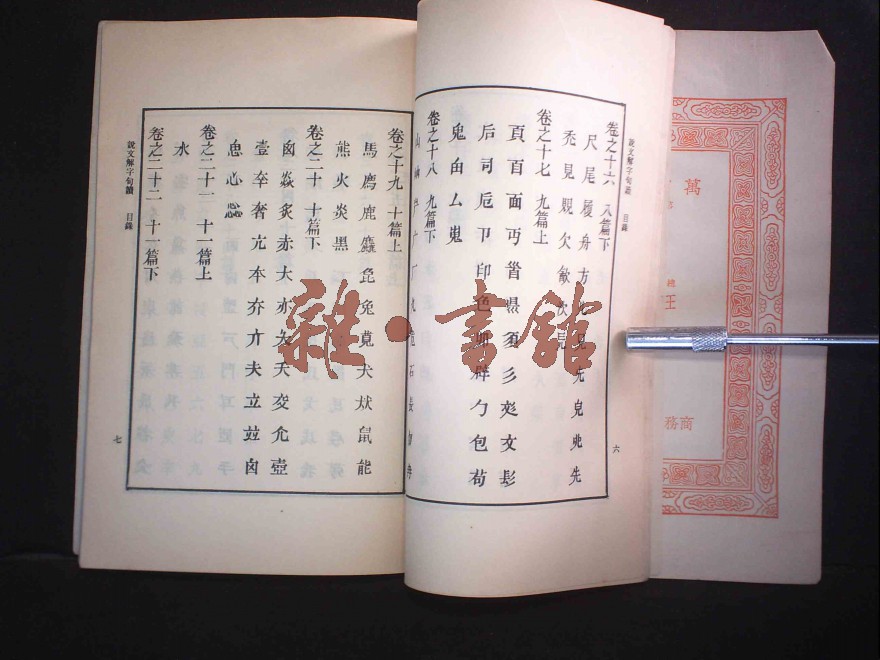 說文解字句讀 目錄
卷之十六 八篇下
尺尾履舟方
禿見覞欠㱃㳄
先皃兂先
卷之十七 九篇上
頁𦣻面丏首
須彡彣文髟
后司卮卩印色
辟勹包茍
鬼甶厶嵬
卷之十八 九篇下
六
卷之十九 十篇上
馬廌鹿麤㲋兔萈犬㹜鼠能
熊火炎黑
卷之二十 十篇下
囪焱炙赤大亦夨夭交尣壺
壹㚔奢亢夲夰亣夫立竝囟
思心惢
卷之二十一 十一篇上
水
卷之二十二 十一篇下
說文解字句讀 目錄
七
萬
王
商務
雜·書館